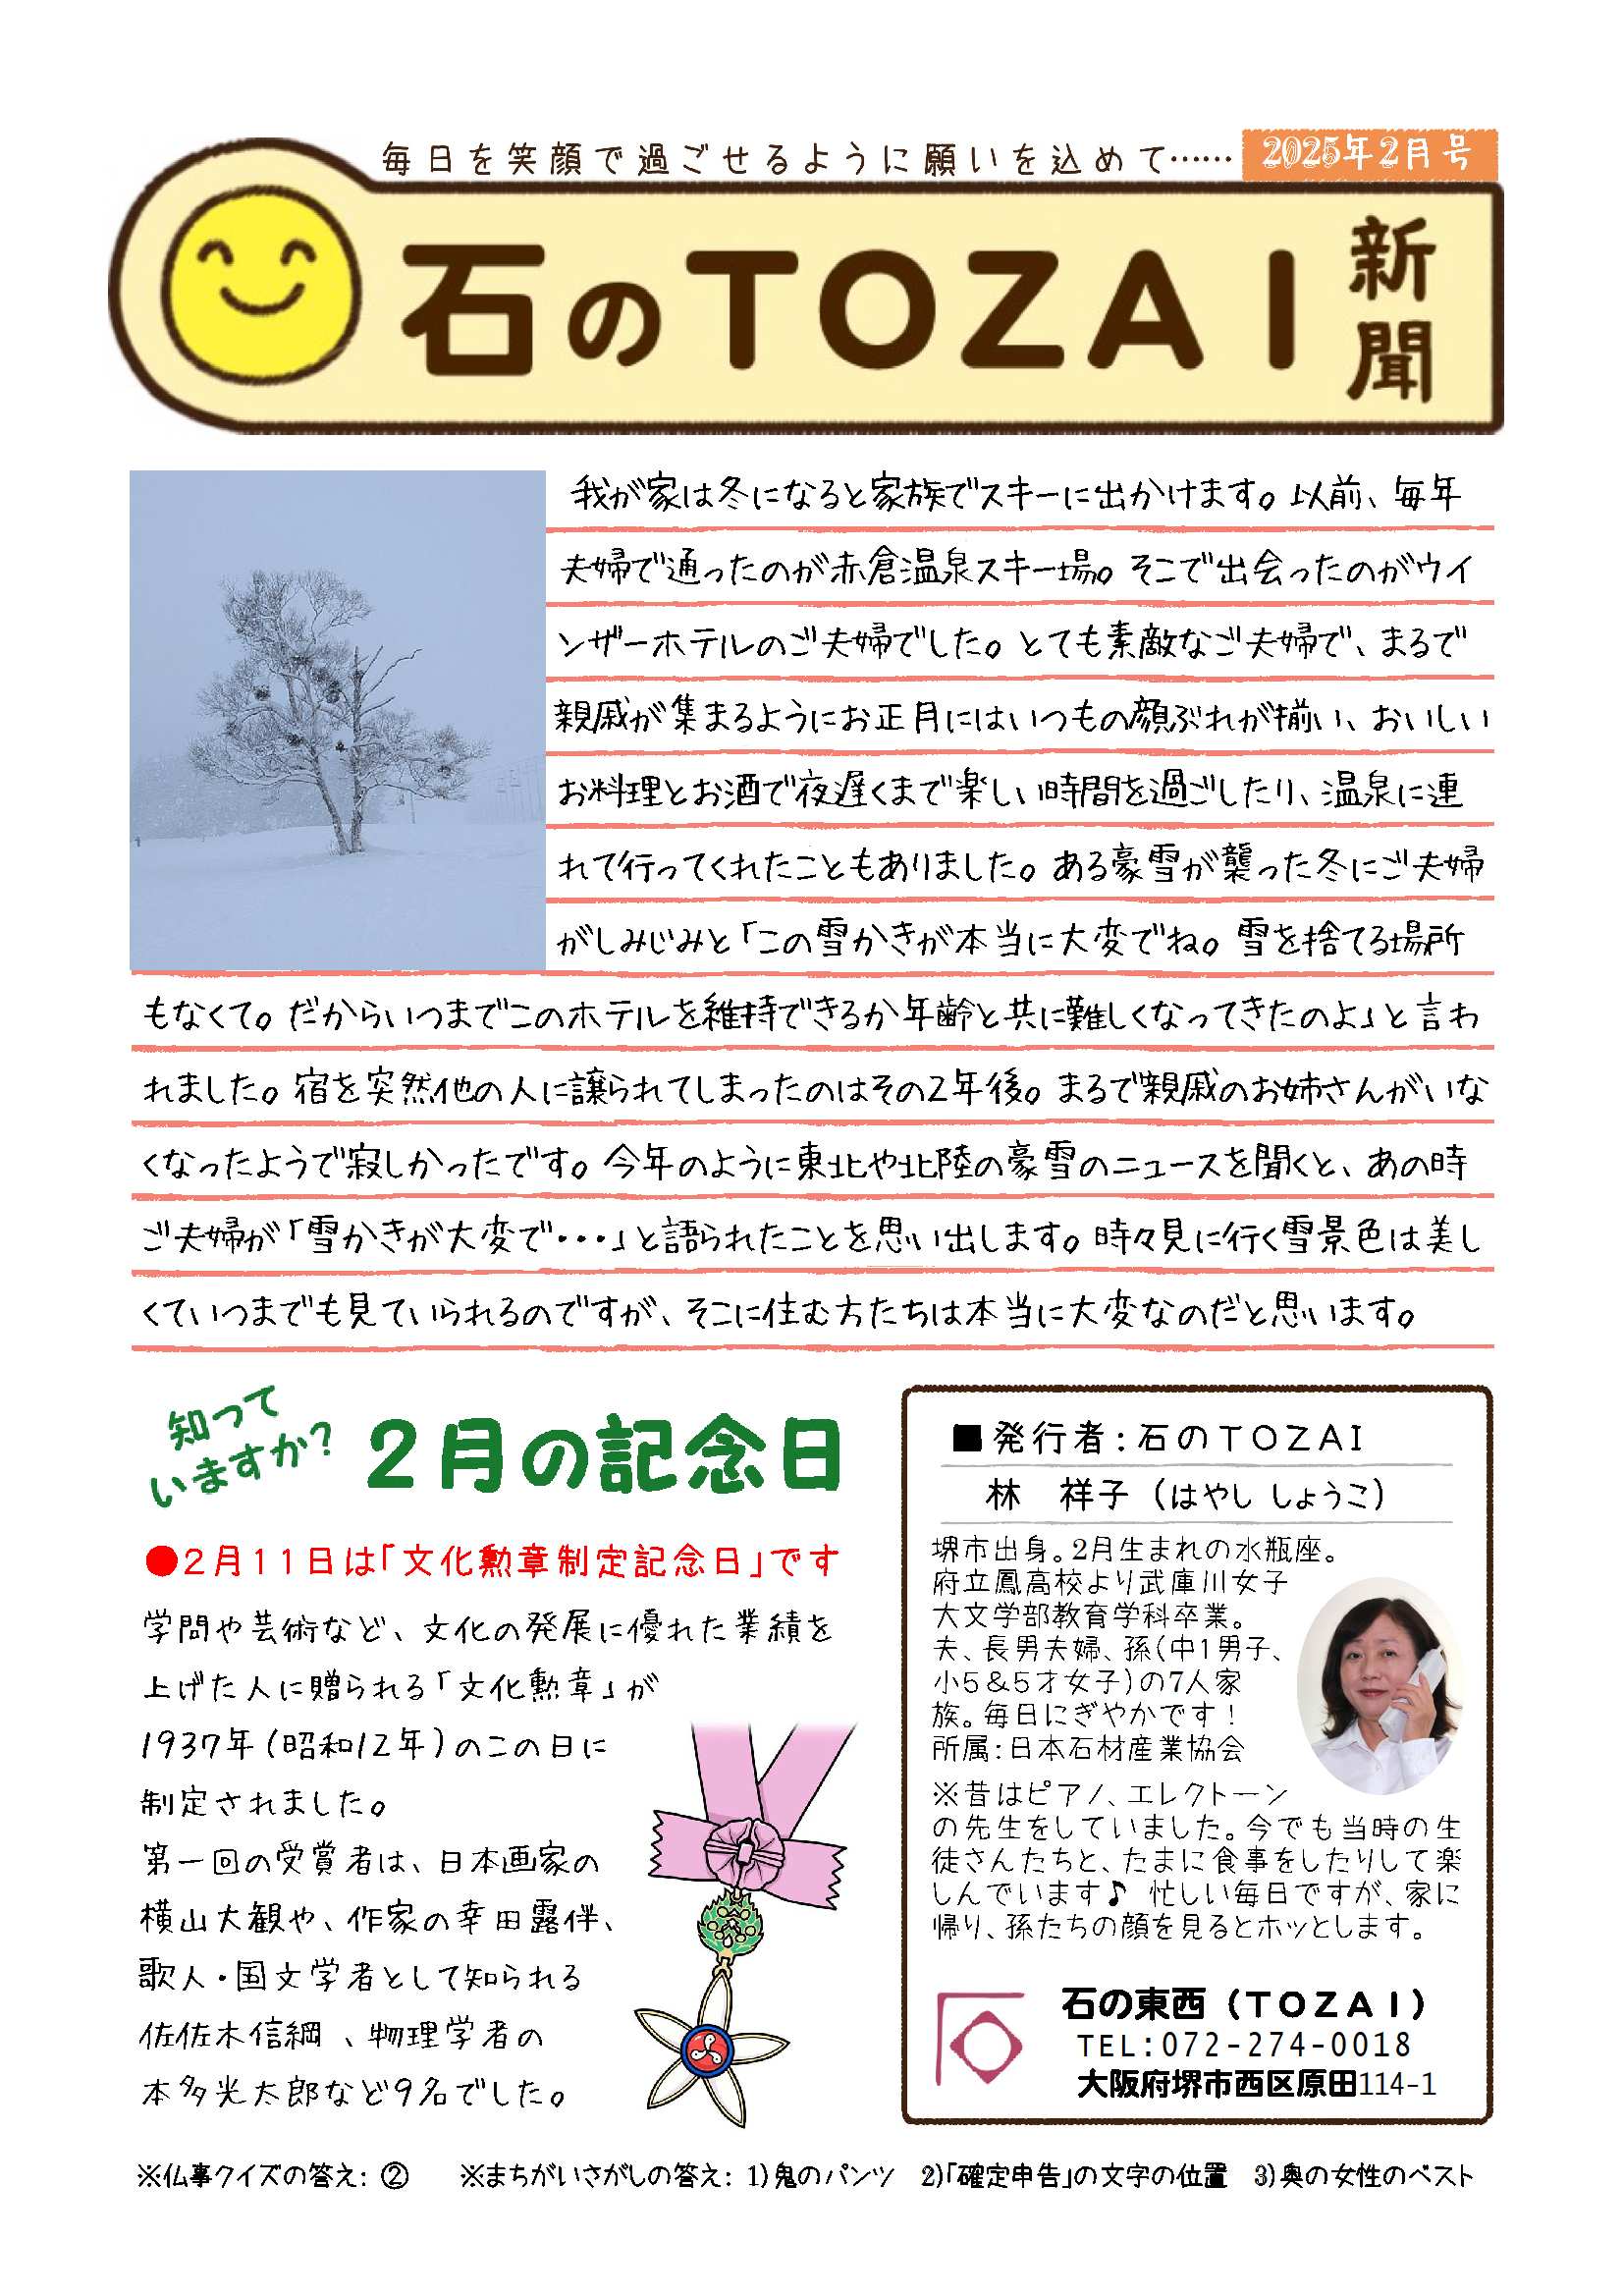 毎日を笑顔で過ごせるように願いを込めて……
2025年2月号
石のTOZAI
新聞
我が家は冬になると家族でスキーに出かけます。以前、毎年
夫婦で通ったのが赤倉温泉スキー場。そこで出会ったのがウイ
ンザーホテルのご夫婦でした。とても素敵なご夫婦で、まるで
親戚が集まるようにお正月にはいつもの顔ぶれが揃い、おいしい
お料理とお酒で夜遅くまで楽しい時間を過ごしたり、温泉に連
れて行ってくれたこともありました。ある豪雪が襲った冬にご夫婦
がしみじみと「この雪かきが本当に大変でね。雪を捨てる場所
もなくて。だからいつまでこのホテルを維持できるか年齢と共に難しくなってきたのよ」と言わ
れました。宿を突然他の人に譲られてしまったのはその2年後。まるで親戚のお姉さんがいな
くなったようで寂しかったです。今年のように東北や北陸の豪雪のニュースを聞くと、あの時
ご夫婦が「雪かきが大変で・・・」と語られたことを思い出します。時々見に行く雪景色は美し
くていつまでも見ていられるのですが、そこに住む方たちは本当に大変なのだと思います。
知って
いますか?
2月の記念日
●2月11日は「文化勲章制定記念日」です
学問や芸術など、文化の発展に優れた業績を
上げた人に贈られる「文化勲章」が
1937年(昭和12年)のこの日に
制定されました。
第一回の受賞者は、日本画家の
横山大観や、作家の幸田露伴、
歌人・国文学者として知られる
佐佐木信綱 、物理学者の
本多光太郎など9名でした。
■発行者:石のTOZAI
林 祥子(はやし しょうこ)
堺市出身。2月生まれの水瓶座。
府立鳳高校より武庫川女子
大文学部教育学科卒業。
夫、長男夫婦、孫(中1男子、
小5&5才女子)の7人家
族。毎日にぎやかです!
所属:日本石材産業協会
※昔はピアノ、エレクトーン
の先生をしていました。今でも当時の生
徒さんたちと、たまに食事をしたりして楽
しんでいます♪ 忙しい毎日ですが、家に
帰り、孫たちの顔を見るとホッとします。
石の東西(TOZAI)
TEL:072-274-0018
大阪府堺市西区原田114-1
※仏事クイズの答え: ② ※まちがいさがしの答え: 1)鬼のパンツ 2)「確定申告」の文字の位置 3)奥の女性のベスト